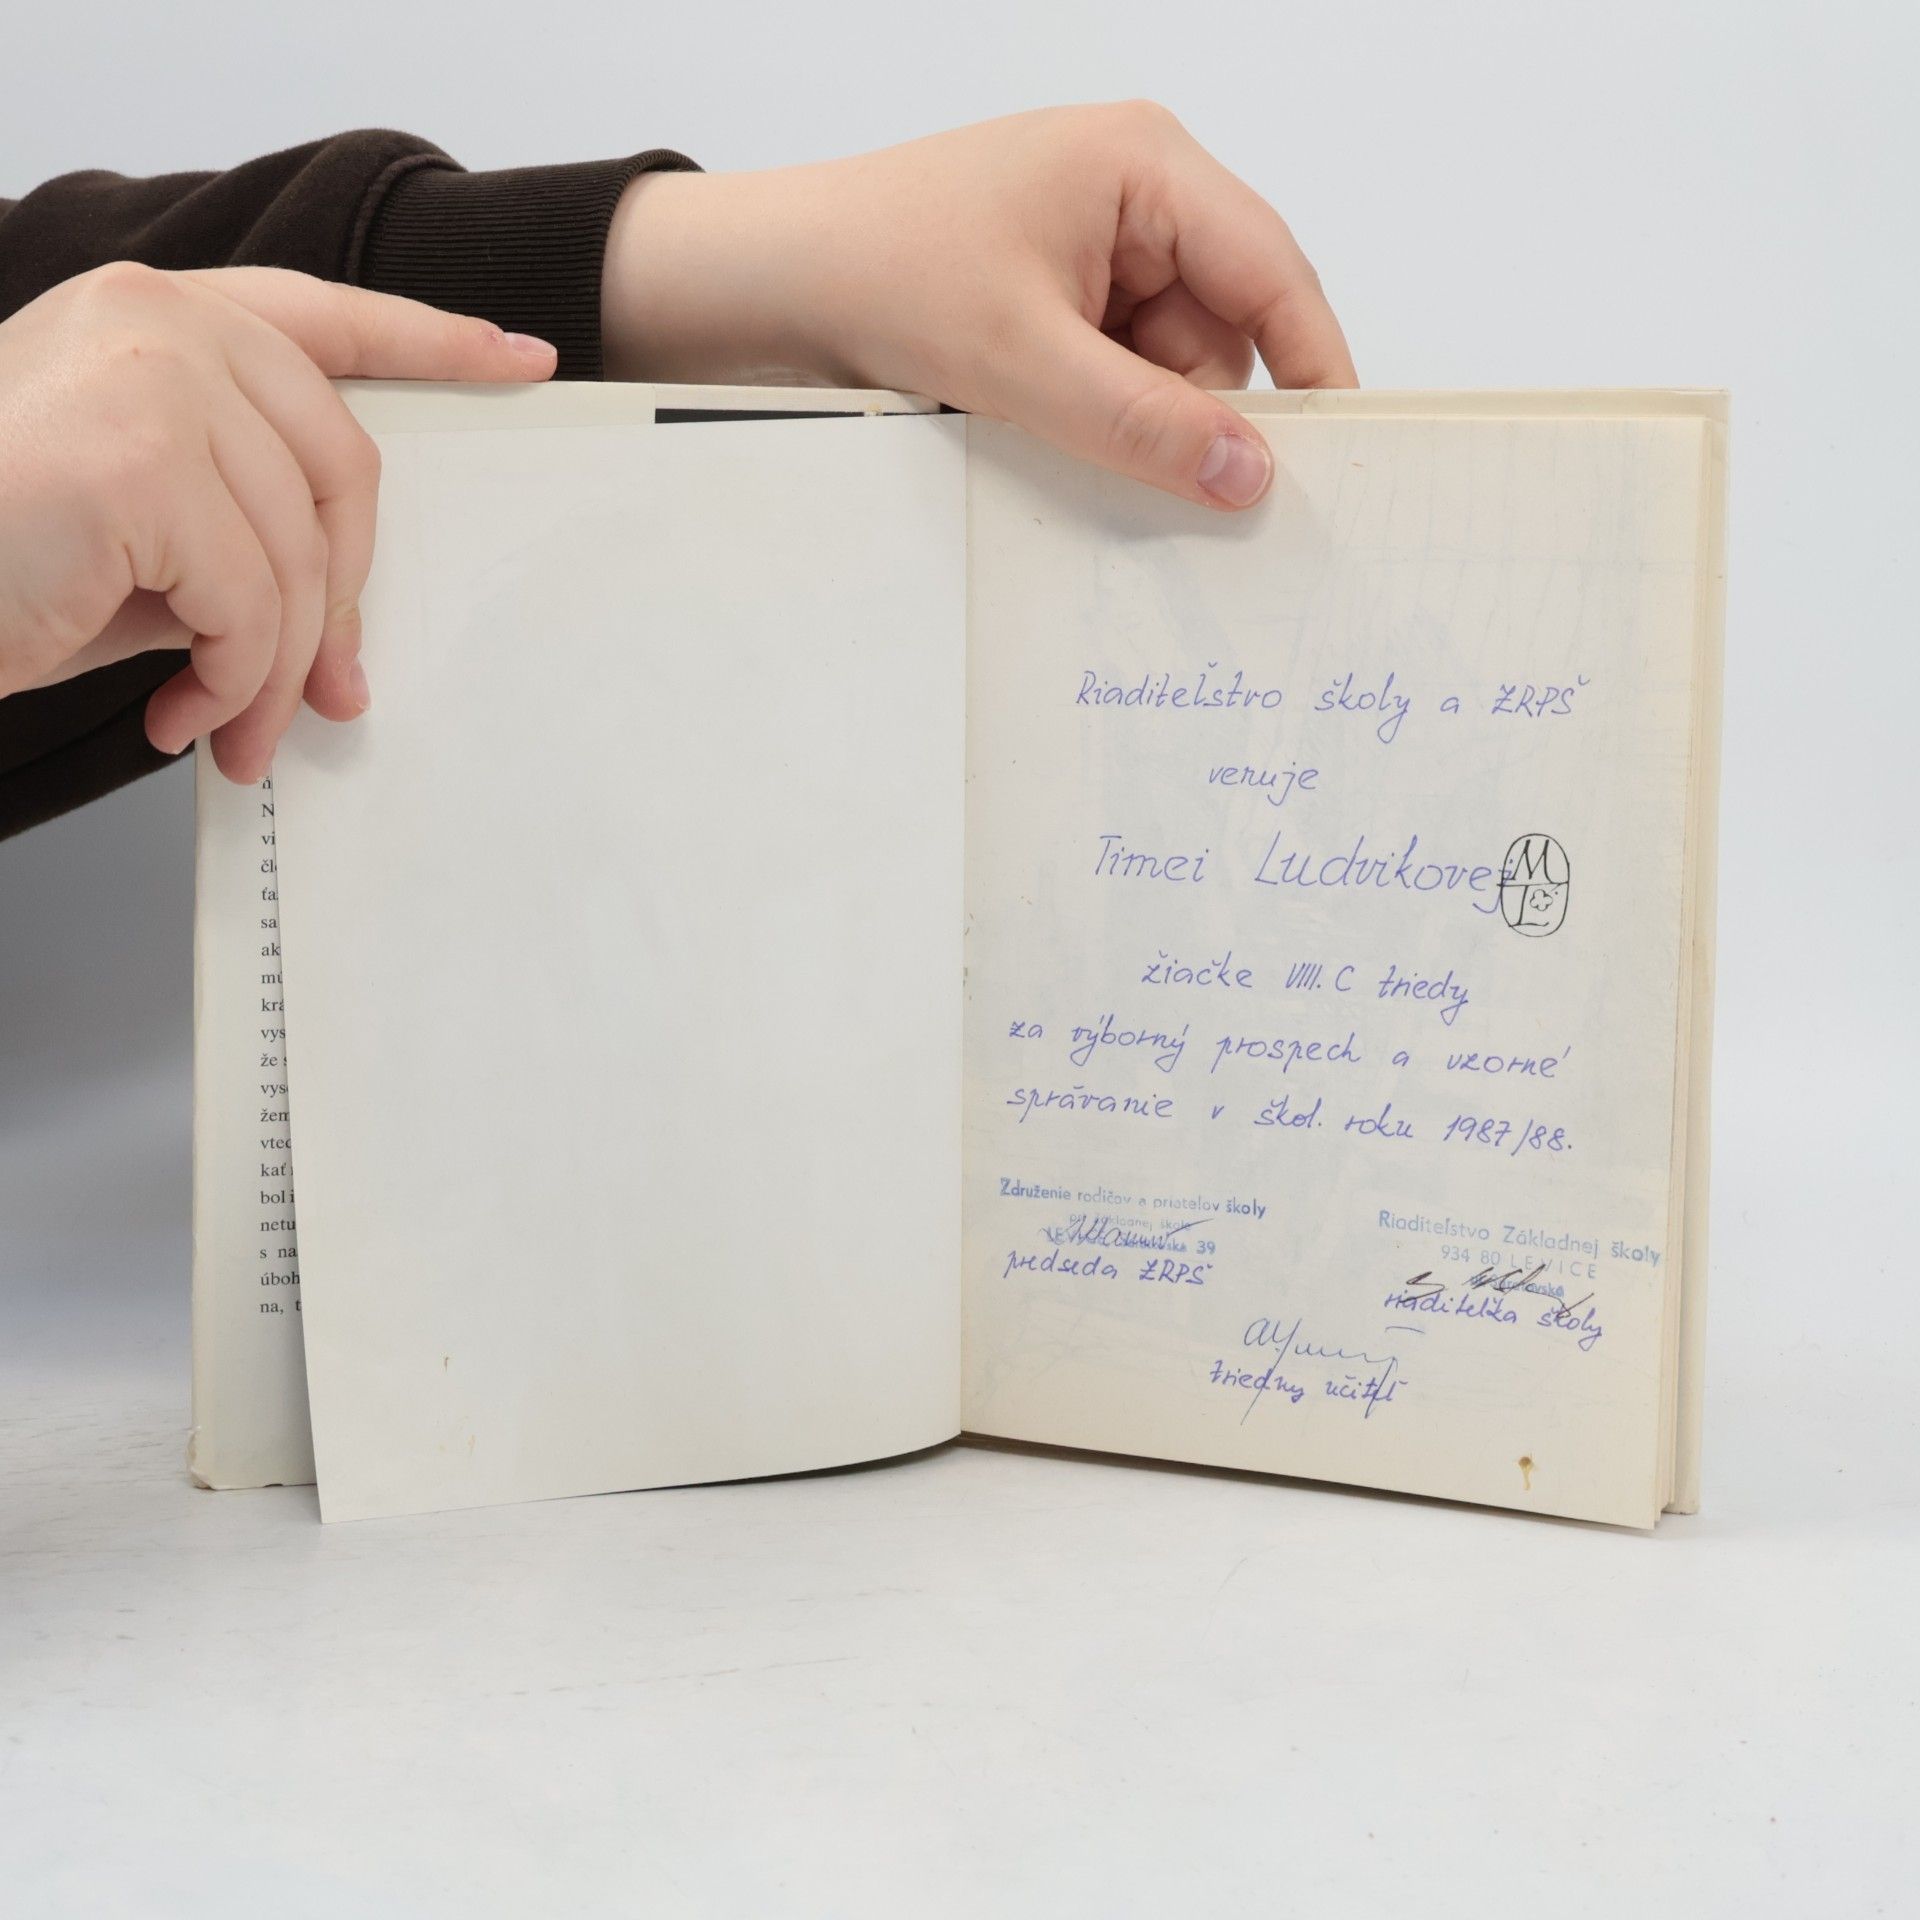 n
N
vi
čl
ťa
sa
ak
mú
krá
vys
že s
vys
žem
vted
kať
bol i
netu
s na
úboh
na, t
Riaditeľstvo školy a ZRPŠ
venuje
Timei Ludvikovej
M
L
žiačke VIII. C triedy
za výborný prospech a vzorné
správanie v škol. roku 1987/88.
Združenie rodičov a priateľov školy
pri Základnej škole
39
predseda ZRPŠ
Riaditeľstvo Základnej školy
934 80 LEVICE
riaditeľka školy
triedny učiteľ